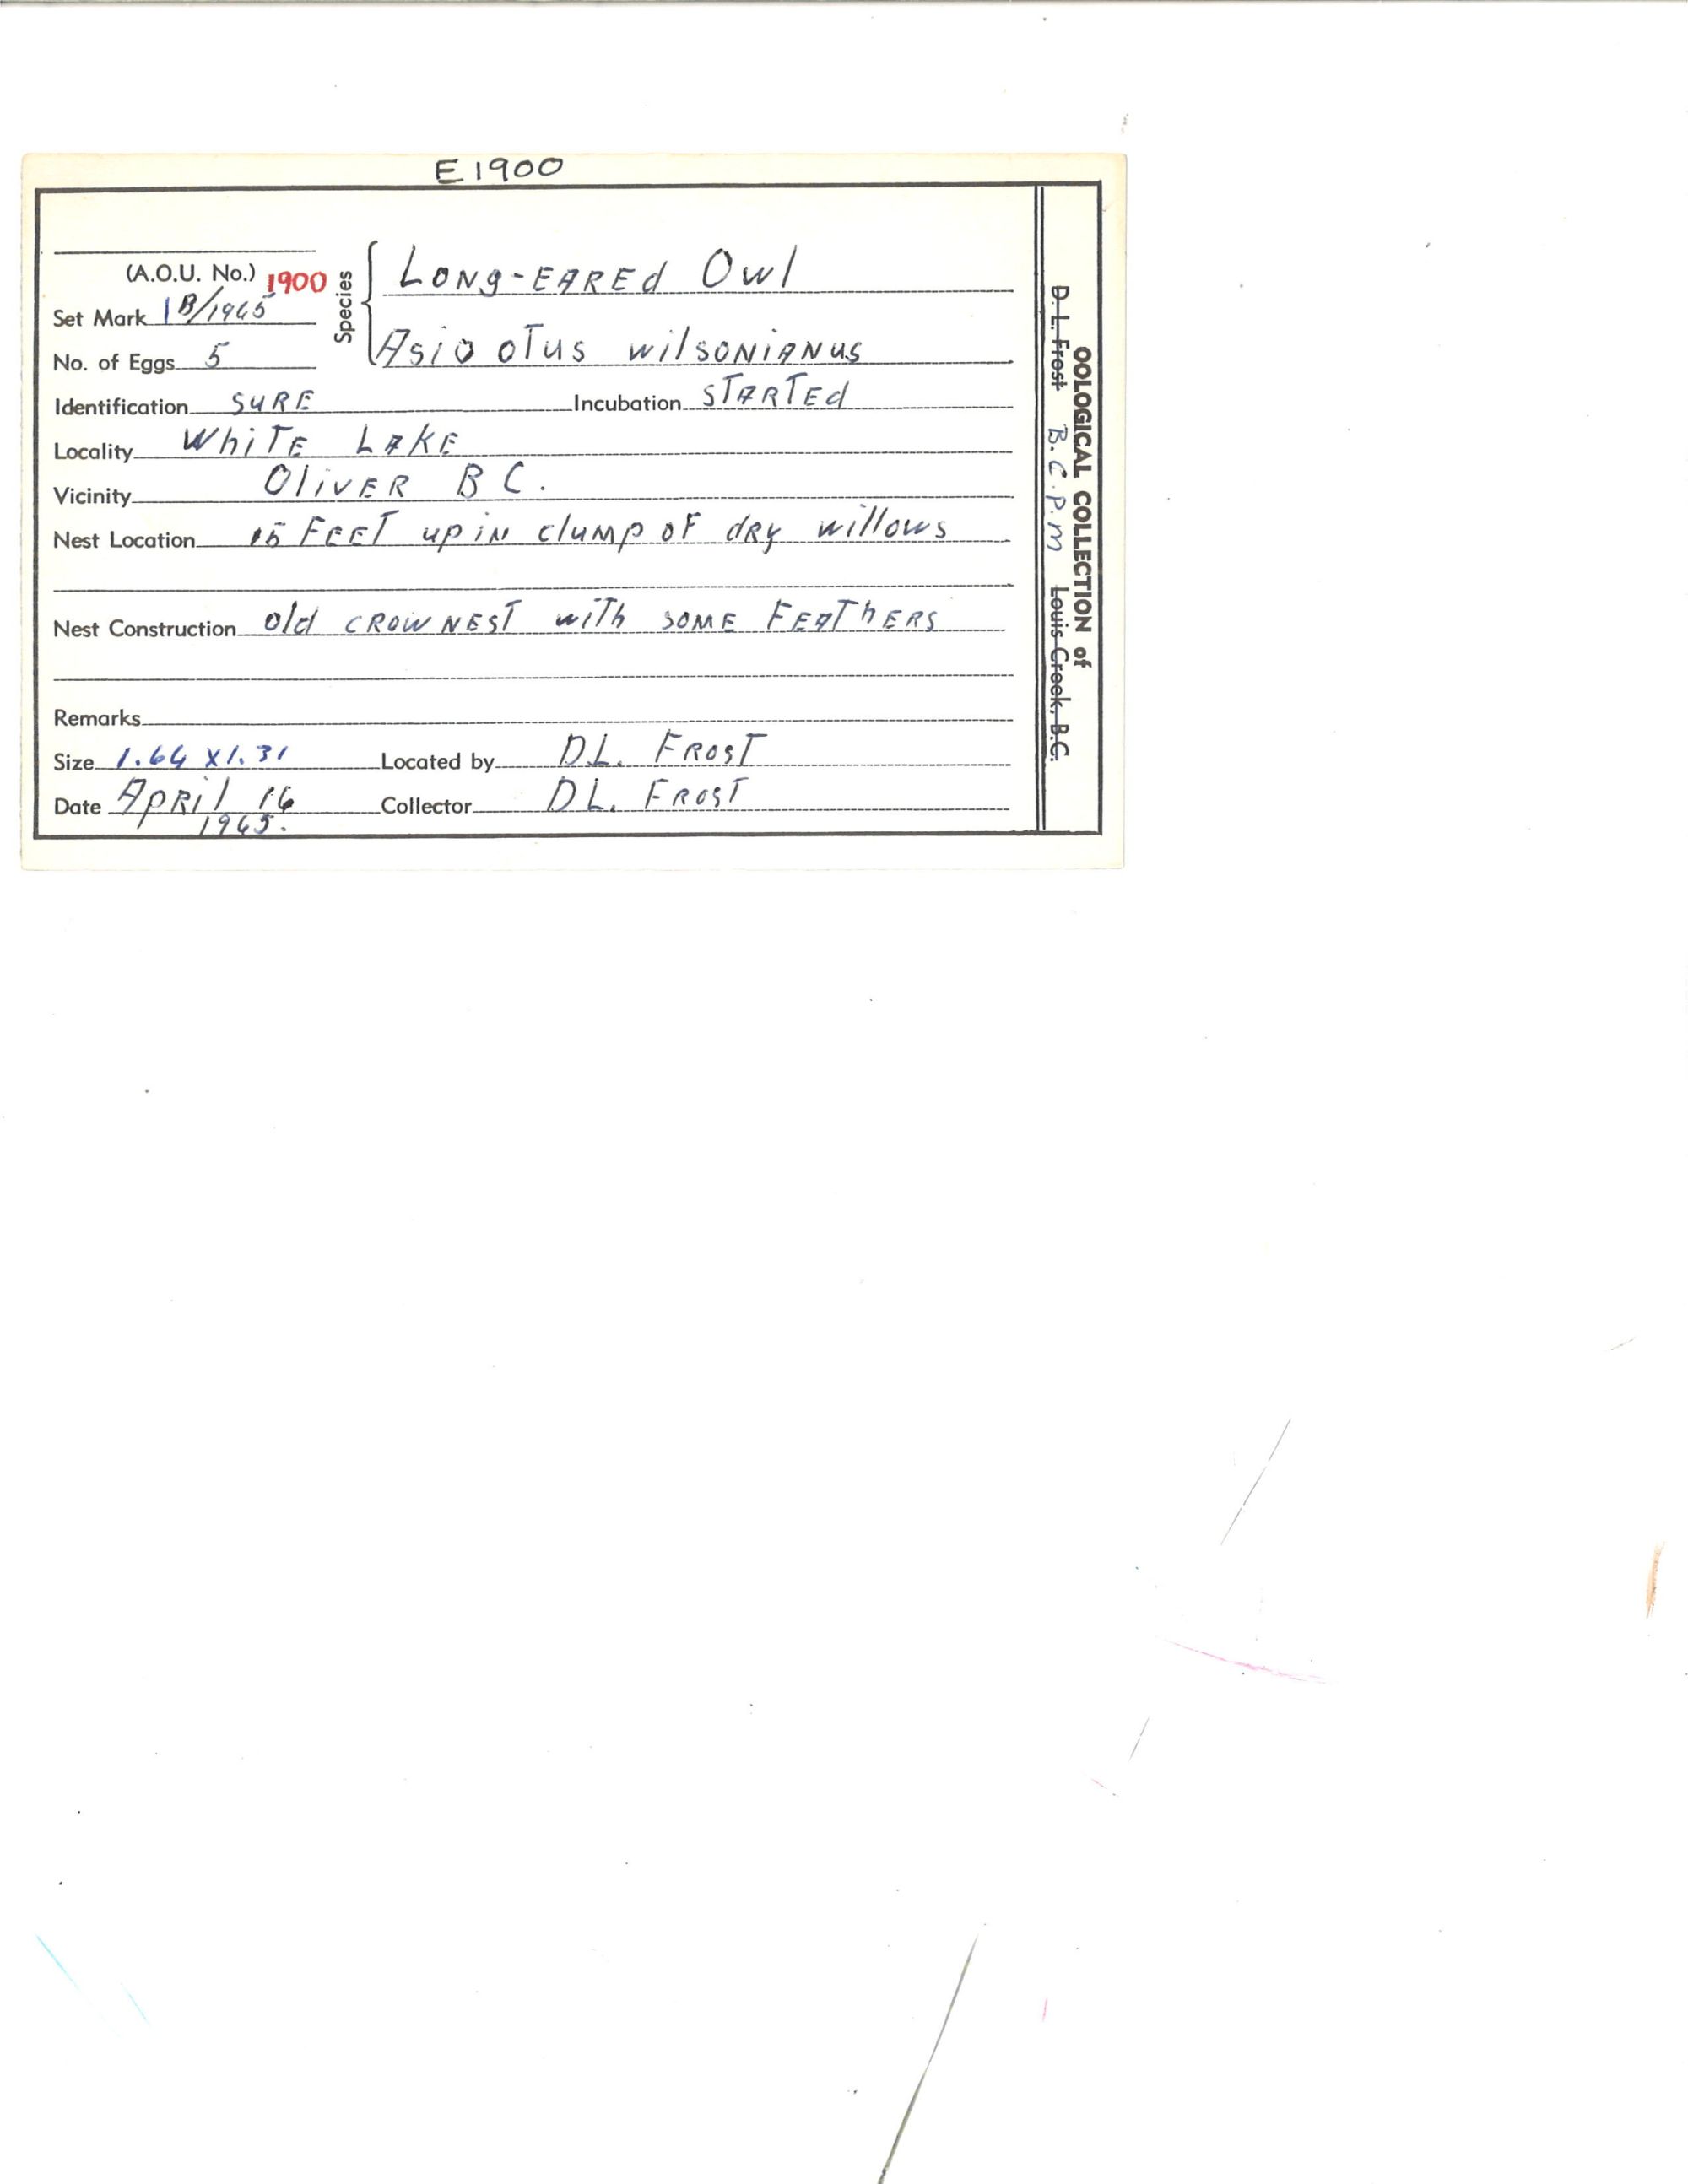 E1900
(A.O.U. No.) 1900
Species
Long-EARED Owl
Set Mark 1B/1965
Asio oTus wilsoNiANus
No. of Eggs 5
Identification SURE Incubation STARTEd
Locality WhiTE LAKE
Vicinity OliVER B C.
Nest Location 15 FEET up iN clump oF dRy willows
Nest Construction old CROW NEST wiTh SOME FEAThERS
Remarks
Size 1.64 X 1.31 Located by D.L. FROST
Date APRil 16 Collector D L. FROST
1965.
OOLOGICAL COLLECTION of
D. L. Frost B.C.P.M Louis Creek, B.C.